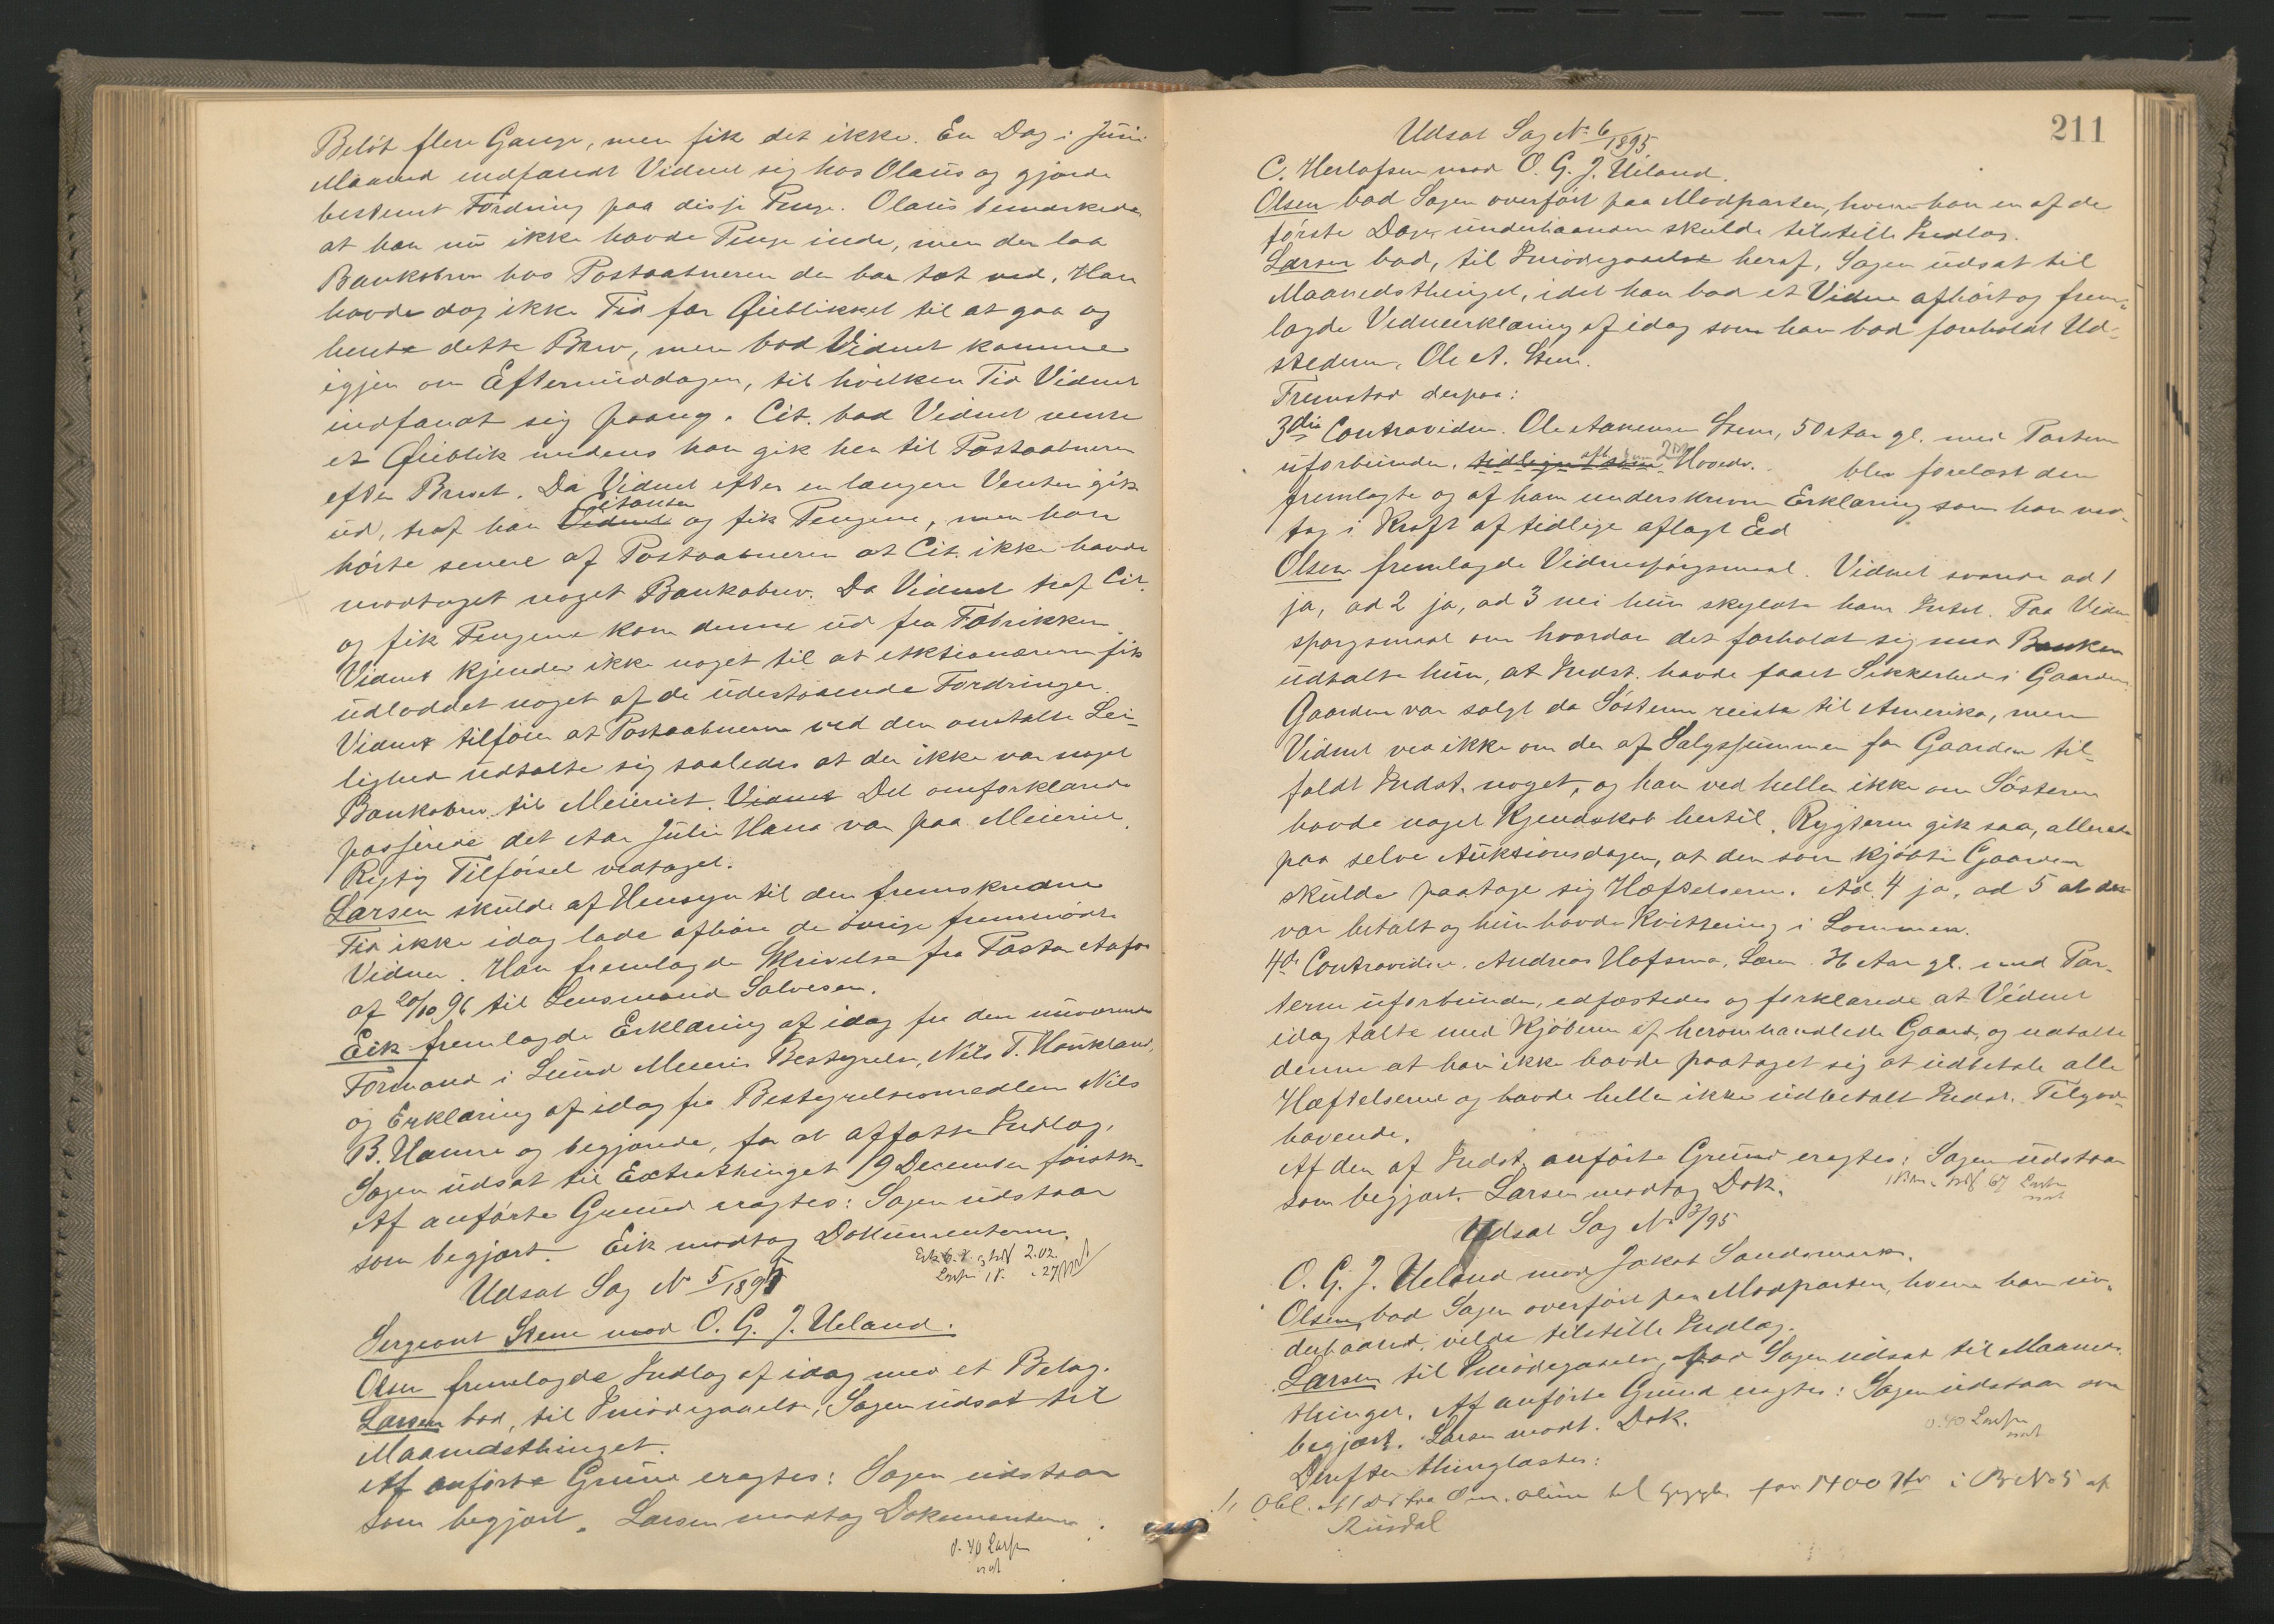 Beløb flere Gange, men fik det ikke. En Dag i Juni
Maaned indfandt Vidnet sig hos Olaus og gjorde
bestemt Fordring paa disse Penge. Olaus bemærkede
at han nu ikke havde Penge inde, men der laa
Bankobrev hos Postaabneren der bar tæt ved. Han
havde dog ikke Tid for Øieblikket til at gaa og
hente dette Brev, men bad Vidnet komme
igjen om Eftermiddagen, til hvilken Tid Vidnet
indfandt sig paany. Cit. bad Vidnet vente
et Øieblik medens han gik hen til Postaabneren
efter Brevet. Da Vidnet efter en længere Venten gik
ud, traf han Vidnet Citanten og fik Pengene, men han
hørte senere af Postaabneren at Cit. ikke havde
modtaget noget Bankobrev. Da Vidnet traf Cit.
og fik Pengene kom denne ud fra Fabrikken.
Vidnet kjender ikke noget til at Aktionærerne fik
udloddet noget af de udestaaende Fordringer.
Vidnet tilføier at Postaabneren ved den omtalte Lei-
lighed udtalte sig saaledes at der ikke var noget
Bankobrev til Meieriet. Vidnet Det omforklarede
passerede det Aar Julie Hana var paa Meieriet.
Rigtig Tilførsel vedtaget.
Larsen skulde af Hensyn til den fremskredne
Tid ikke idag lade afhøre de øvrige fremmødte
Vidner. Han fremlagde Skrivelse fra Pastor
af 20/10 96 til Lensmand Salvesen.
Eik fremlagde Erklæring af idag fra den nuværende
Formand i Lund Meieris Bestyrelse, Nils T. Haukland,
og Erklæring af idag fra Bestyrelsesmedlem Nils
B. Hamre og begjærede, for at affatte Indlæg,
Sagen udsat til Extrathinget 19 December førstk.
Af anførte Grund eragtes: Sagen udstaar
som begjært. Eik modtog Dokumenterne.
Udsat Sag No 5/1895
Sergeant Steen mod O. G. J. Ueland.
Olsen fremlagde Indlæg af idag med et Bilag.
Larsen bad, til Imødegaaelse, Sagen udsat til
Maanedsthinget.
Af anførte Grund eragtes: Sagen udstaar
som begjært. Larsen modtog Dokumenterne.
0.40 Larsen
mdt
211
Udsat Sag No 6/1895
C. Herlofsen mod O. G. J. Ueland.
Olsen bad Sagen overført paa Modparten, hvem han en af de
første Dage underhaanden skulde tilstille Indlæg.
Larsen bad, til Imødegaaelse heraf, Sagen udsat til
Maanedsthinget, idet han bad et Vidne afhørt og frem-
lagde Vidneerklæring af idag som han bad foreholdt Ud-
stederen, Ole A. Steen.
Fremstod derpaa:
3die Contravidne. Ole Aanensen Steen, 50 Aar gl. med Parterne
uforbunden, tidligere afh. som 2det Hovedv. blev forelæst den
fremlagte og af ham underskrevne Erklæring som han ved-
tog i Kraft af tidlige aflagt Eed
Olsen fremlagde Vidnespørgsmaal. Vidnet svarede ad 1
ja, ad 2 ja, ad 3 nei hun skyldte ham Intet. Paa Vidne-
spørgsmaal om hvordan det forholdt sig med Banken
udtalte hun, at Indst. havde faaet Sikkerhed i Gaarden.
Gaarden var solgt da Søsteren reiste til Amerika, men
Vidnet ved ikke om der af Salgssummen for Gaarden til-
faldt Indst. noget, og han ved heller ikke om Søsteren
havde noget Kjendskab hertil. Rygterne gik saa, allerede
paa selve Auktionsdagen, at den som kjøbte Gaarden
skulde paatage sig Hæftelserne. Ad 4 ja, ad 5 at det
var betalt og hun havde Kvittering i Lommen.
4de Contravidne. Andreas Hofsmo, Steen 36 Aar gl. med Par-
terne uforbunden, edfæstedes og forklarede at Vidnet
idag talte med Kjøberen af heromhandlede Gaard, og udtalte
denne at han ikke havde paataget sig at udbetale alle
Hæftelserne og havde heller ikke udbetalt Indst. Tilgode-
havende.
Af den af Indst. anførte Grund eragtes: Sagen udstaar
som begjært. Larsen modtog Dok.
Udsat Sag No 3/95
O. G. J. Ueland mod Jakob Sandsmark.
Olsen bad Sagen overført paa Modparten, hvem han un-
derhaand. vilde tilstille Indlæg.
Larsen til Imødegaaelse, bad Sagen udsat til Maaneds-
thinget. Af anførte Grund eragtes: Sagen udstaar som
begjært. Larsen modt. Dok.
0.40 Larsen
mdt
Derefter thinglæstes:
1, Obl. af fra til for 1400 Kr i No 5 af
Rusdal